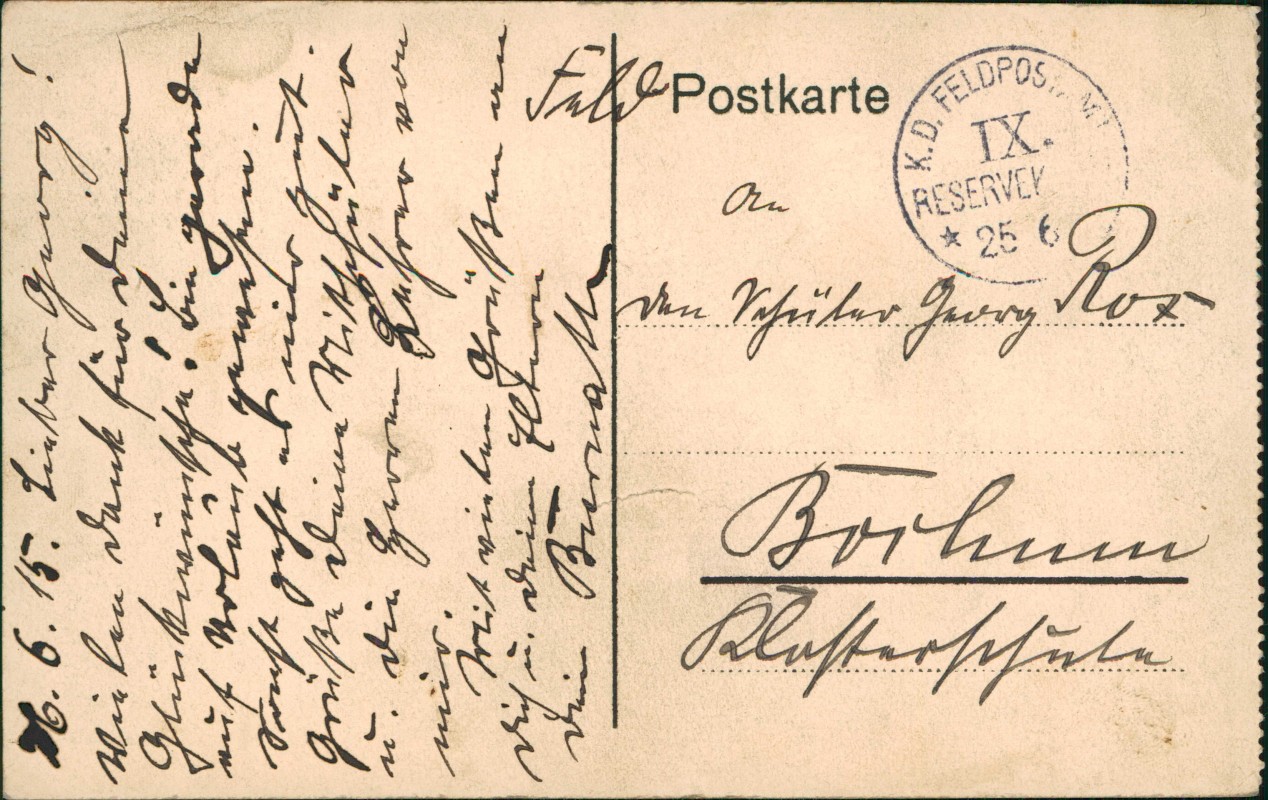 26. 6. 15. Lieber Georg!
Vielen Dank für deine
Glückwünsche! Bin gerade
auf Urlaub gewesen.
Sonst geht es mir gut.
Grüße deine Mitschüler
u. die Herren Lehrer von
mir.
Mit vielen Grüßen an
dich u. deine Eltern
dein
Feld Postkarte
K. D. FELDPOSTAMT
IX.
RESERVEK
25 6
An
den Schüler Georg Rox
Bochum
Klosterschule